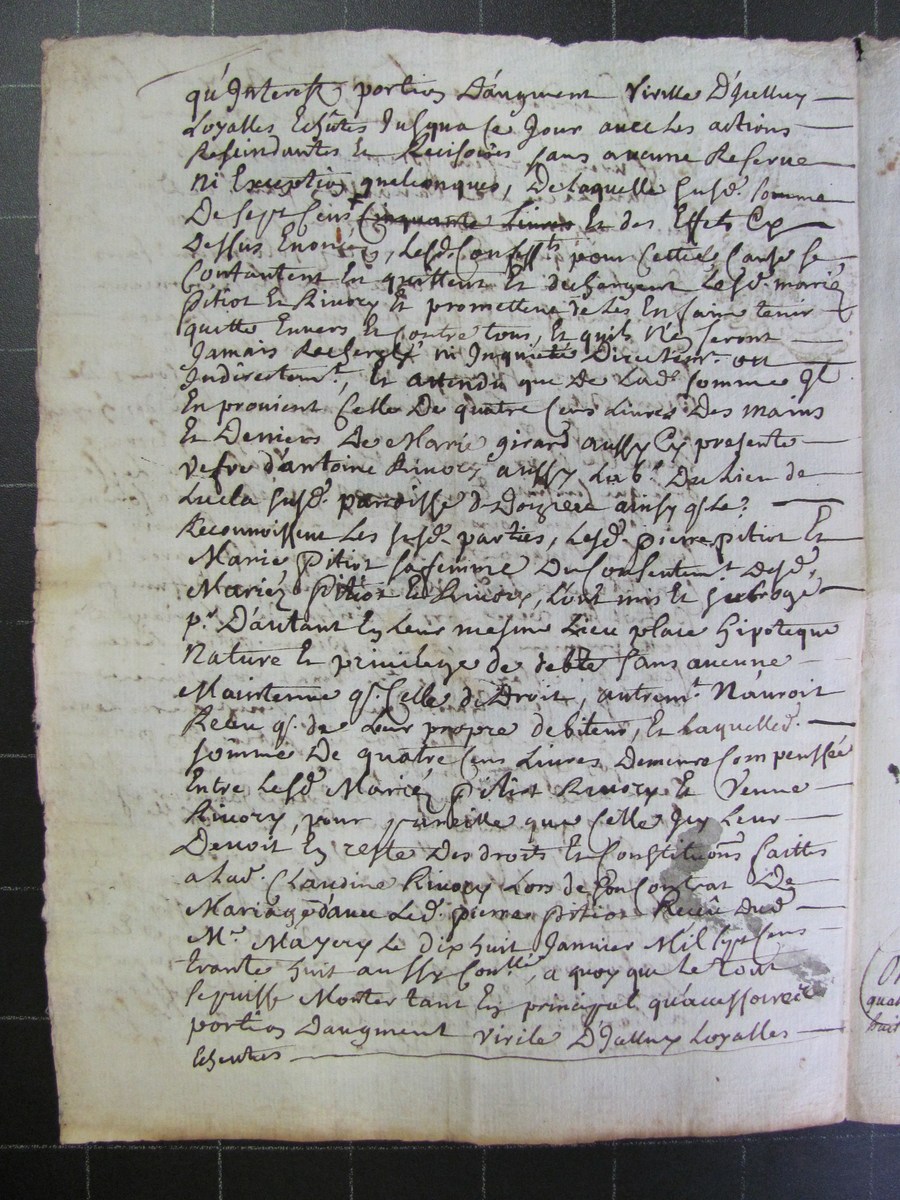 qu'Interest portion D'augment virille D'Jelluy
Loyalles Echûtes Jusqua ce Jour avec les actions
Rescindantes et Recisoires sans aucune Reserve
ni Exception quelconques, De laquelle susd. somme
De sept cens cinquante Livres Et des Effets Cy
Dessus Enoncés, Lesd. Confessts pour cette cause se
Contantent En quittent Et dechargent Lesd. mariés
pitiot Et Rivory Et promettent de les En faire tenir
quitte Envers Et contre tous, Et quils n'en seront
Jamais Recherché ni Inquietés Directemt. ou
Indirectemt., Et attendu que De Lade somme qe
En provient Celle De quatre Cens Livres Des mains
Et Deniers De Marie girard aussy Cy presente
vefve d'antoine Rivory aussy Lab. Du Lieu de
Lucla susd. paroisse d Doizieu ainsy q. Le
Reconnoissent Les susd. parties, Lesd. pierre pitiot Et
Marie pitiot sa femme Du Consentemt. Desd.
Mariés pitiot Et Rivory, L'ont mis Et subrogé
pr. D'autant En Leur mesme Lieu place hipoteque
Nature Et privilege de debte sans aucune
Maintenue q. Celle de Droit, autremt. N'auroit
Receu q. de Leur propre debiteur, Et Laquelle d.
somme De quatre Cens Livres Demeure Compenssée
Entre Lesd. Mariés pitiot Rivory Et Veuve
Rivory, pour pareille que Celle Icy Leur
Devoit En reste Des droits Et Constitutions faittes
a Lad. Claudine Rivory Lors de son Contrat De
Mariage d'avec Led. pierre pitiot Receû Dud.
Me. Mayery Le dix huit Janvier Mil sept Cens
trante huit aussy Conllé, a quoy que Le tout
se puisse Monter tant En principal qu'accessoires
portion D'augment virile D'Jelluy Loyalles
Echeutes